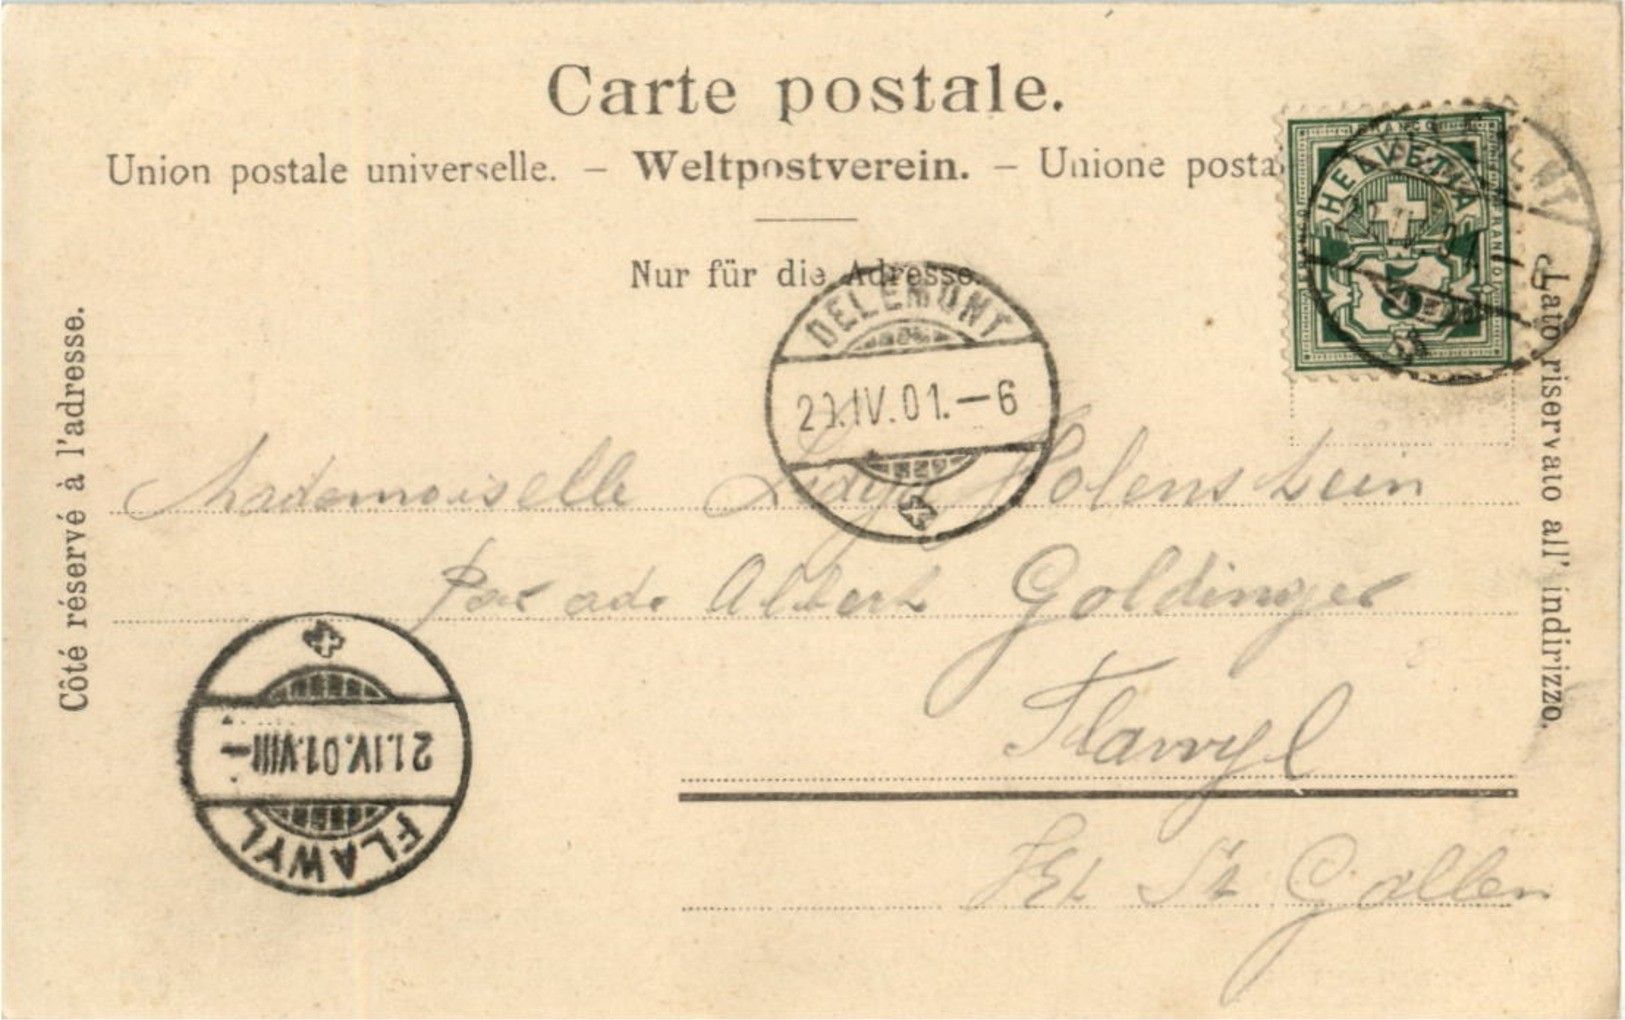 Carte postale.
Union postale universelle. – Weltpostverein. – Unione posta
Nur für die Adresse.
Côté réservé à l'adresse.
Lato riservato all' indirizzo.
FRANCO
HELVETIA
5
DELEMONT
20.IV.01.–6
Mademoiselle Lidya Holenstein
Par ade Albert Goldinger
Flawyl
Kt St Gallen
21.IV.01.VIII–
FLAWYL